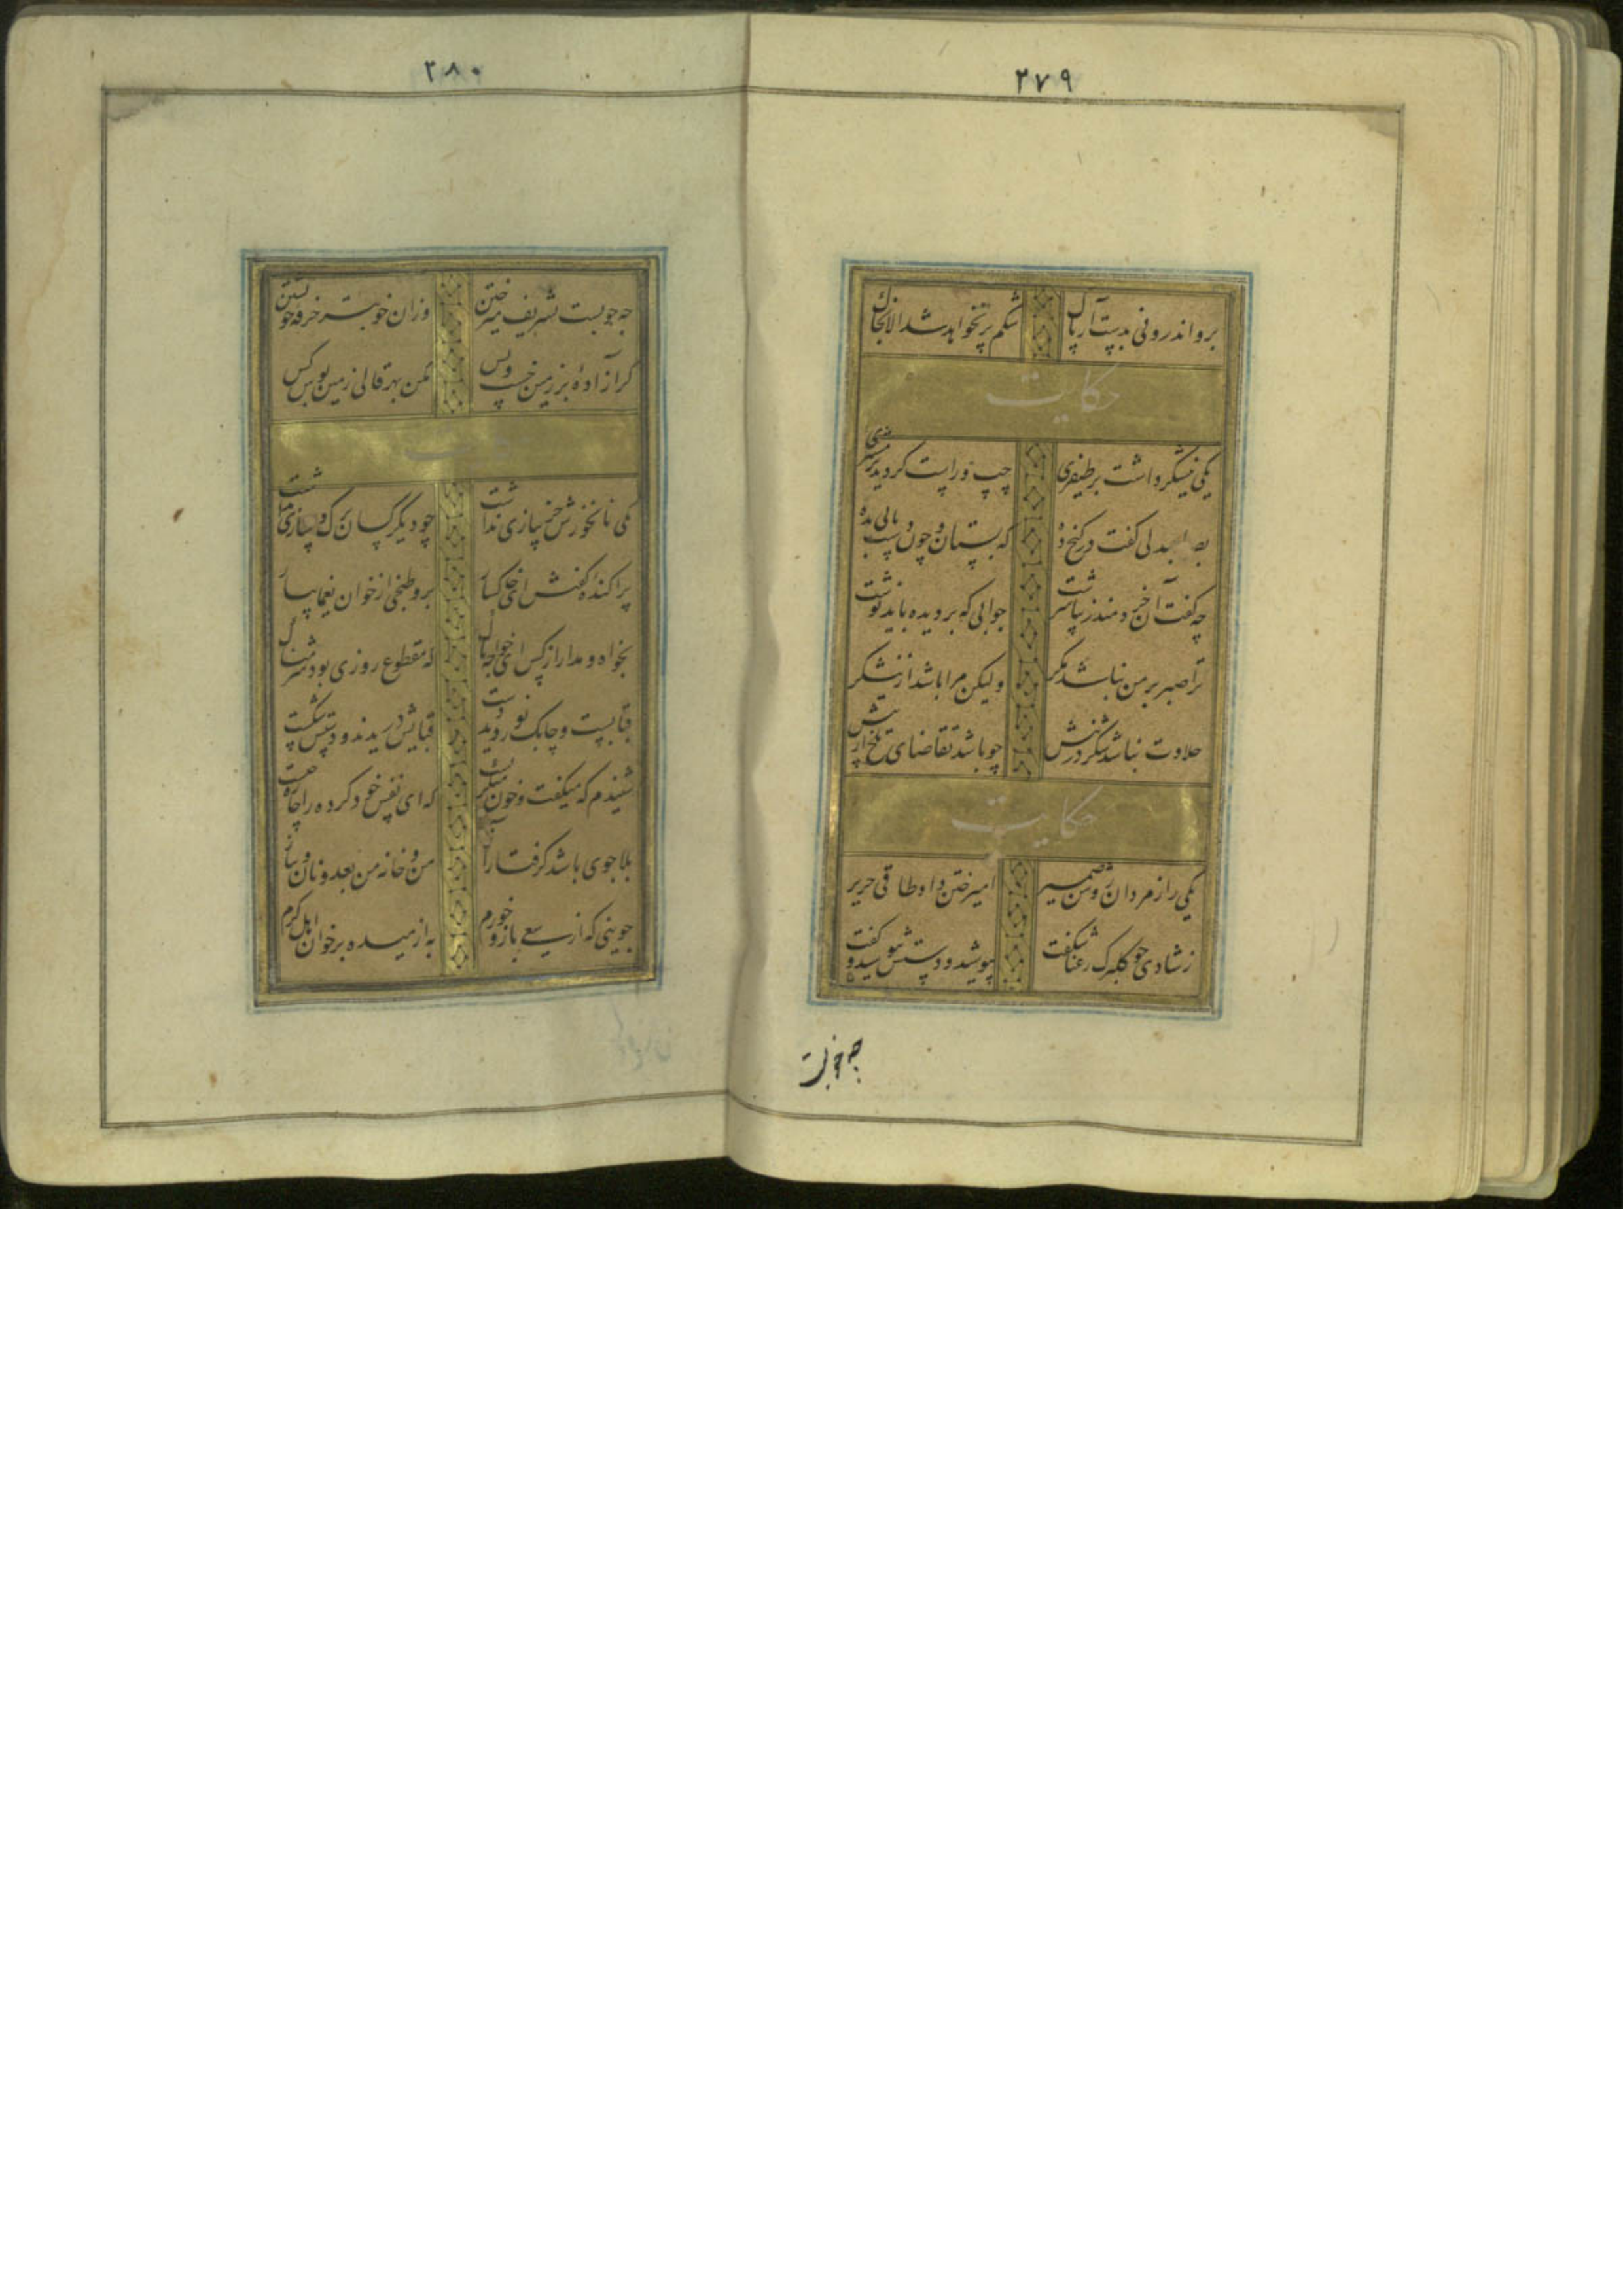 ۲۷۹
برو اندرونی بدست آر پاک شکم پر نخواهد شد الا بخاک
حکایت
یکی نیشکر داشت بر طیفری چپ و راست گردیده بر مشتری
بصاحبدلی گفت در کنج ده که بستان و چون دست یابی بده
چه گفت آن خردمند زیبا سرشت جوابی که بر دیده باید نوشت
ترا صبر بر من نباشد مگر ولیکن مرا باشد از نیشکر
حلاوت نباشد شکر در نیش چو باشد تقاضای تلخ از پیش
حکایت
یکی را ز مردان روشن ضمیر امیر ختن داد طاقی حریر
ز شادی چو گلبرگ رعنا شگفت بپوشید و دستش ببوسید و گفت
چه خوبست
۲۸۰
چه خوبست تشریف میر ختن وزان خوبتر خرقه خویشتن
گر آزاده بر زمین خسب و بس مکن بهر قالی زمین بوس کس
حکایت
یکی نانخورش جز پیازی نداشت چو دیگر کسان برگ و سازی نداشت
پراکنده گفتش ای خاکسار برو طبخی از خوان یغما بیار
بخواه و مدار از کس ای خواجه باک که مقطوع روزی بود شرمناک
قبا بست و چابک نوردید دست قبایش دریدند و دستش شکست
شنیدم که میگفت و خون میگریست که ای نفس خود کرده را چاره چیست
بلا جوی باشد گرفتار آز من و خانه من بعد و نان و پیاز
جوینی که از سعی بازو خورم به از میده بر خوان اهل کرم